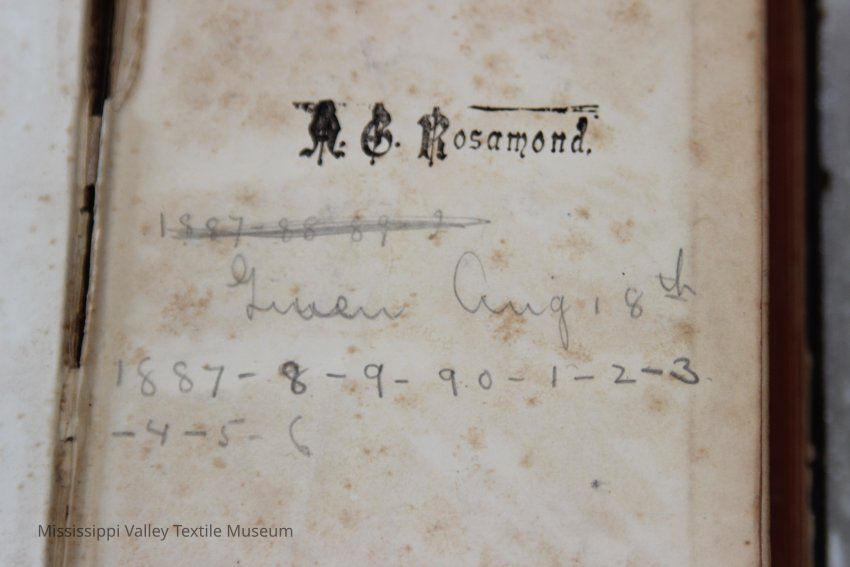 A. G. Rosamond.
1887-88-89-9
Given Aug 18th
1887-8-9-90-1-2-3
-4-5-6
Mississippi Valley Textile Museum